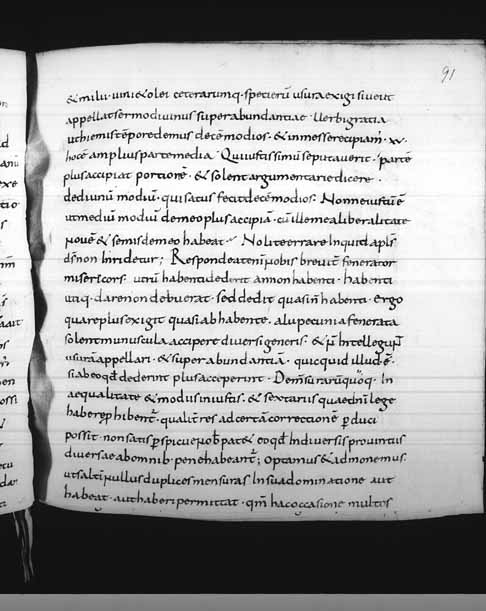 91
& milii· uini & olei ceterarumq· specierū usura exigi siue ut
appellat sermo diuinus superabundantiae· Uerbi gratia
ut hiemis tēpore demus decē modios· & in messe recipiam̄· xv·
hoc ē amplius parte media· Qui iustissimū se putauerit· partē
plus accipiat portionē· & solent argumentari & dicere·
dedi unū modiū· qui satus fecit decē modios: Nonne iustū ē
ut mediū modiū de meo plus accipiā· cū ille mea liberalitate
nouē & semis de meo habeat· Nolite errare inquid apl̄s
d̄s non inridetur; Respondeat enī nobis breuit̄ fenerator
misericors· utrū habenti dederit an non habenti· habenti
utiq· dare non debuerat· sed dedit quasi n̄ habenti· ergo
quare plus exigit quasi ab habente· alii pecunia fenerata
solent munuscula accipere diuersi generis· & n̄ intellegun̄t
usurā appellari· & superabundantiā· quicquid illud ē·
si ab eo qd̄ dederint plus acceperint· Dem̄surarū quoq· in
aequalitate & modiis iniustis· & sextariis quae dn̄i lege
haberep hiben̄t· qualit̄ res ad certā correctionē p̄duci
possit· non satis p̄spicue nob̄ patet eo qd̄ in diuersis prouintiis
diuersae ab omnib· pene habean̄t; optamus & admonemus·
ut saltī nullus duplices mensuras in sua dominatione aut
habeat· aut haberi permittat· qm̄ hac occasione multos